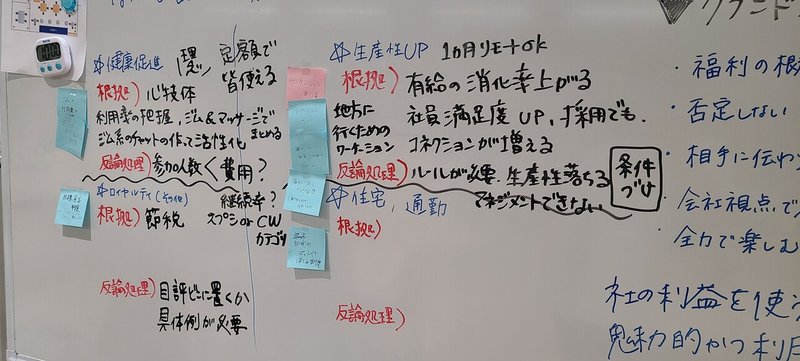 ☆健康促進
理念、
定額で
皆使える
根拠) 心技体
利用率の把握、ジム&マッサージで
まとめる
ジム系のチャットの作って活性化
反論処理) 参加人数く 費用?
☆ロイヤルティ(その他)
継続率?
根拠) 節税
スプシor CW
カテゴリ
反論処理) 目評どこに置くか
具体例が必要
☆生産性UP 10月リモートok
根拠) 有給の消化率上がる
地方に
行くための
ワーケーション
社員満足度UP、採用でも、
コネクションが増える
反論処理) ルールが
生産性落ちる
マネジメントできない
条件
づけ
☆住宅、通勤
根拠)
反論処理)
グランド
・福利の根
・否定しない
・相手に伝わ
・会社視点で
・全力で楽しむ
社の利益を使
魅力的かつ利